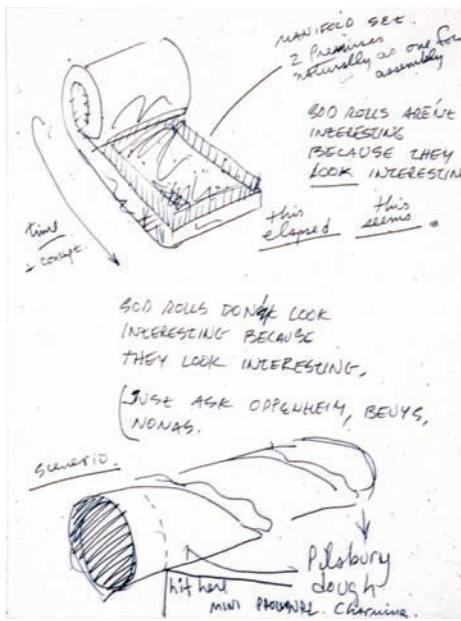 MANIFOLD SET.
2 Premises
naturally as one for
assembly
SOD ROLLS AREN'T
INTERESTING
BECAUSE THEY
LOOK INTERESTIN
this this
elapsed seems.
time
SOD ROLLS DON'T LOOK
INTERESTING BECAUSE
THEY LOOK INTERESTING,
JUST ASK OPPENHEIM, BEUYS,
NONAS.
scenerio.
Pilsbury
dough
hit here
MINI Charming.